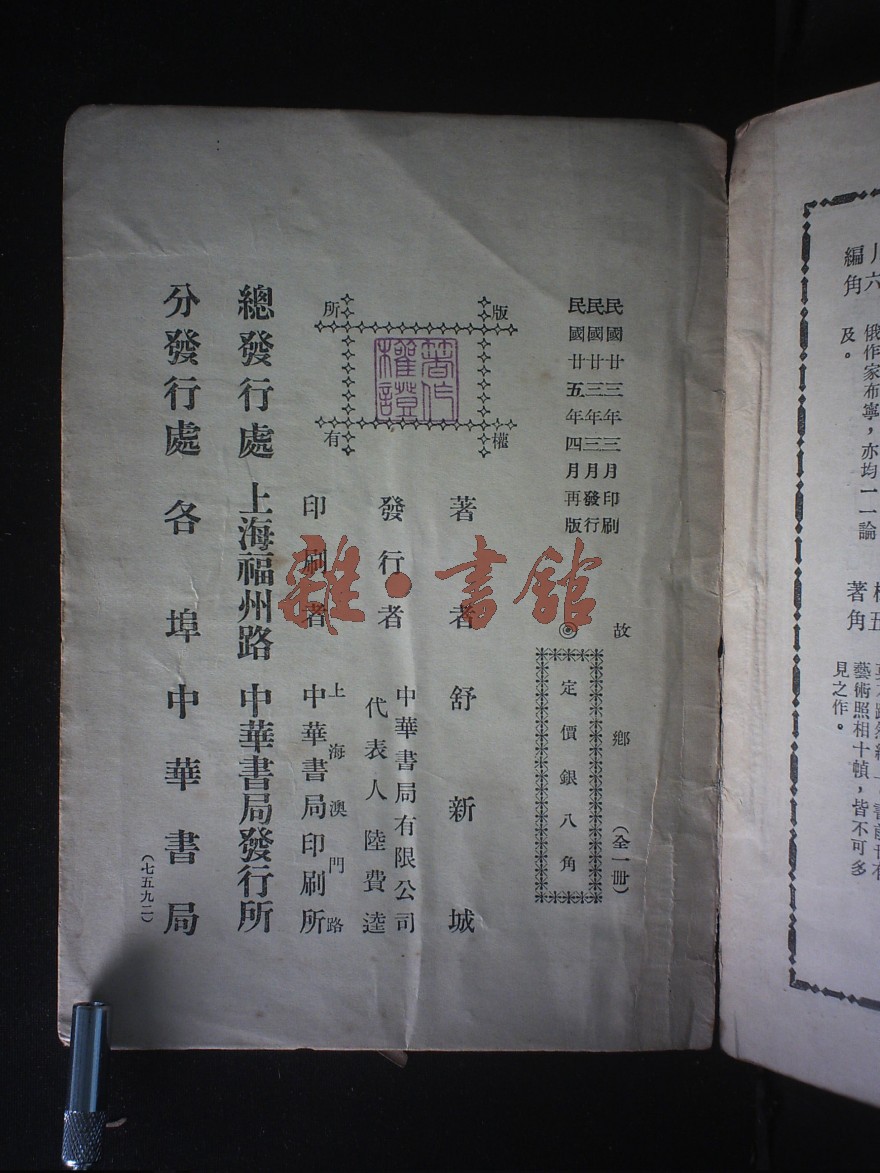 川
六
編
角
俄作家布寧，亦均一一論
及。
著
角
藝術照相十幀，皆不可多
見之作。
民國廿三年三月印刷
民國廿三年三月發行
民國廿五年四月再版
故鄉（全一冊）
◎
定價銀八角
版權
所有
著作權證
著者 舒新城
發行者 中華書局有限公司
代表人 陸費逵
印刷者 上海澳門路
中華書局印刷所
總發行處 上海福州路 中華書局發行所
分發行處 各埠中華書局
（七五九二）
雜·書館